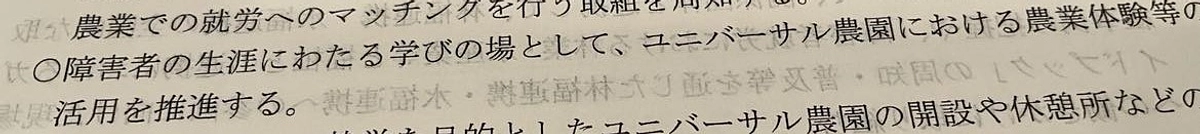 農業での就労へのマッチングを行う取組を周知する。
〇障害者の生涯にわたる学びの場として、ユニバーサル農園における農業体験等の
活用を推進する。
を目的としたユニバーサル農園の開設や休憩所などの